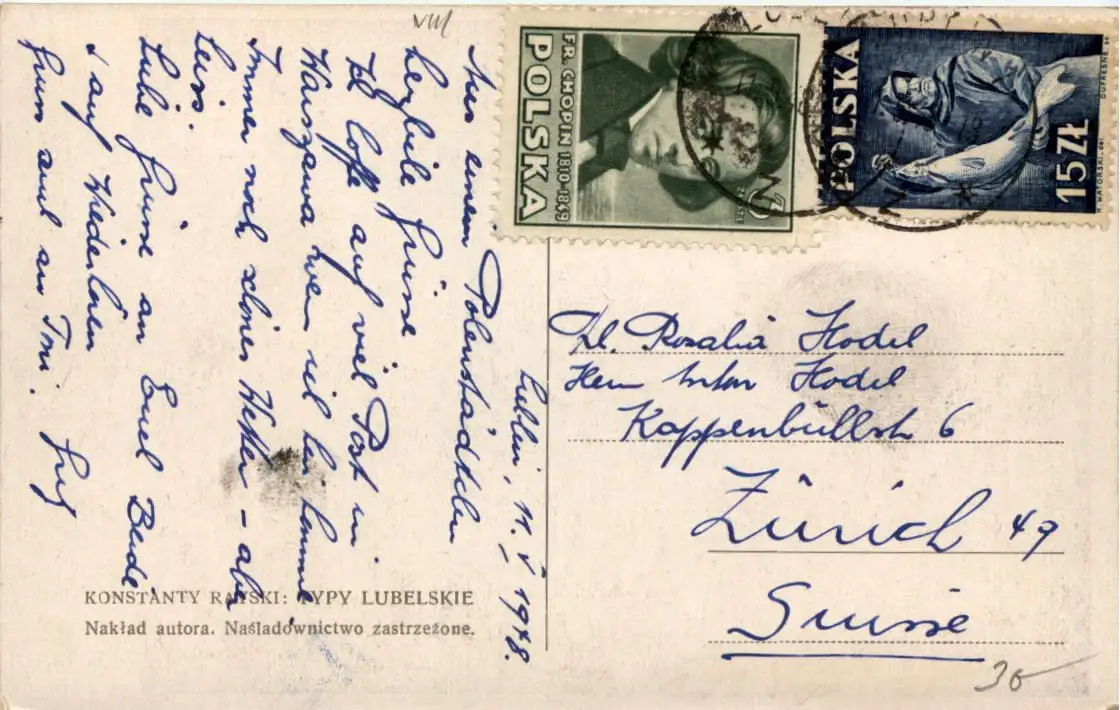 VIII
Lublin, 11. V 1948.
Aus einem Polenstädtchen
herzliche Grüsse
Ich hoffe auf viel Post in
Warszawa wenn ich heim komme
Immer noch schönes Wetter – aber
heiss.
Liebe Grüsse an Euch Beide
auf Wiederhören
Gruss auch an Toni.
KONSTANTY RAYSKI: TYPY LUBELSKIE
Nakład autora. Naśladownictwo zastrzeżone.
FR. CHOPIN 1810-1849
POLSKA
3
ZŁ
POLSKA
15 ZŁ
Rosalia Hodel
Herrn Hodel
Kappenbühlstr 6
Zürich 49
Suisse
30